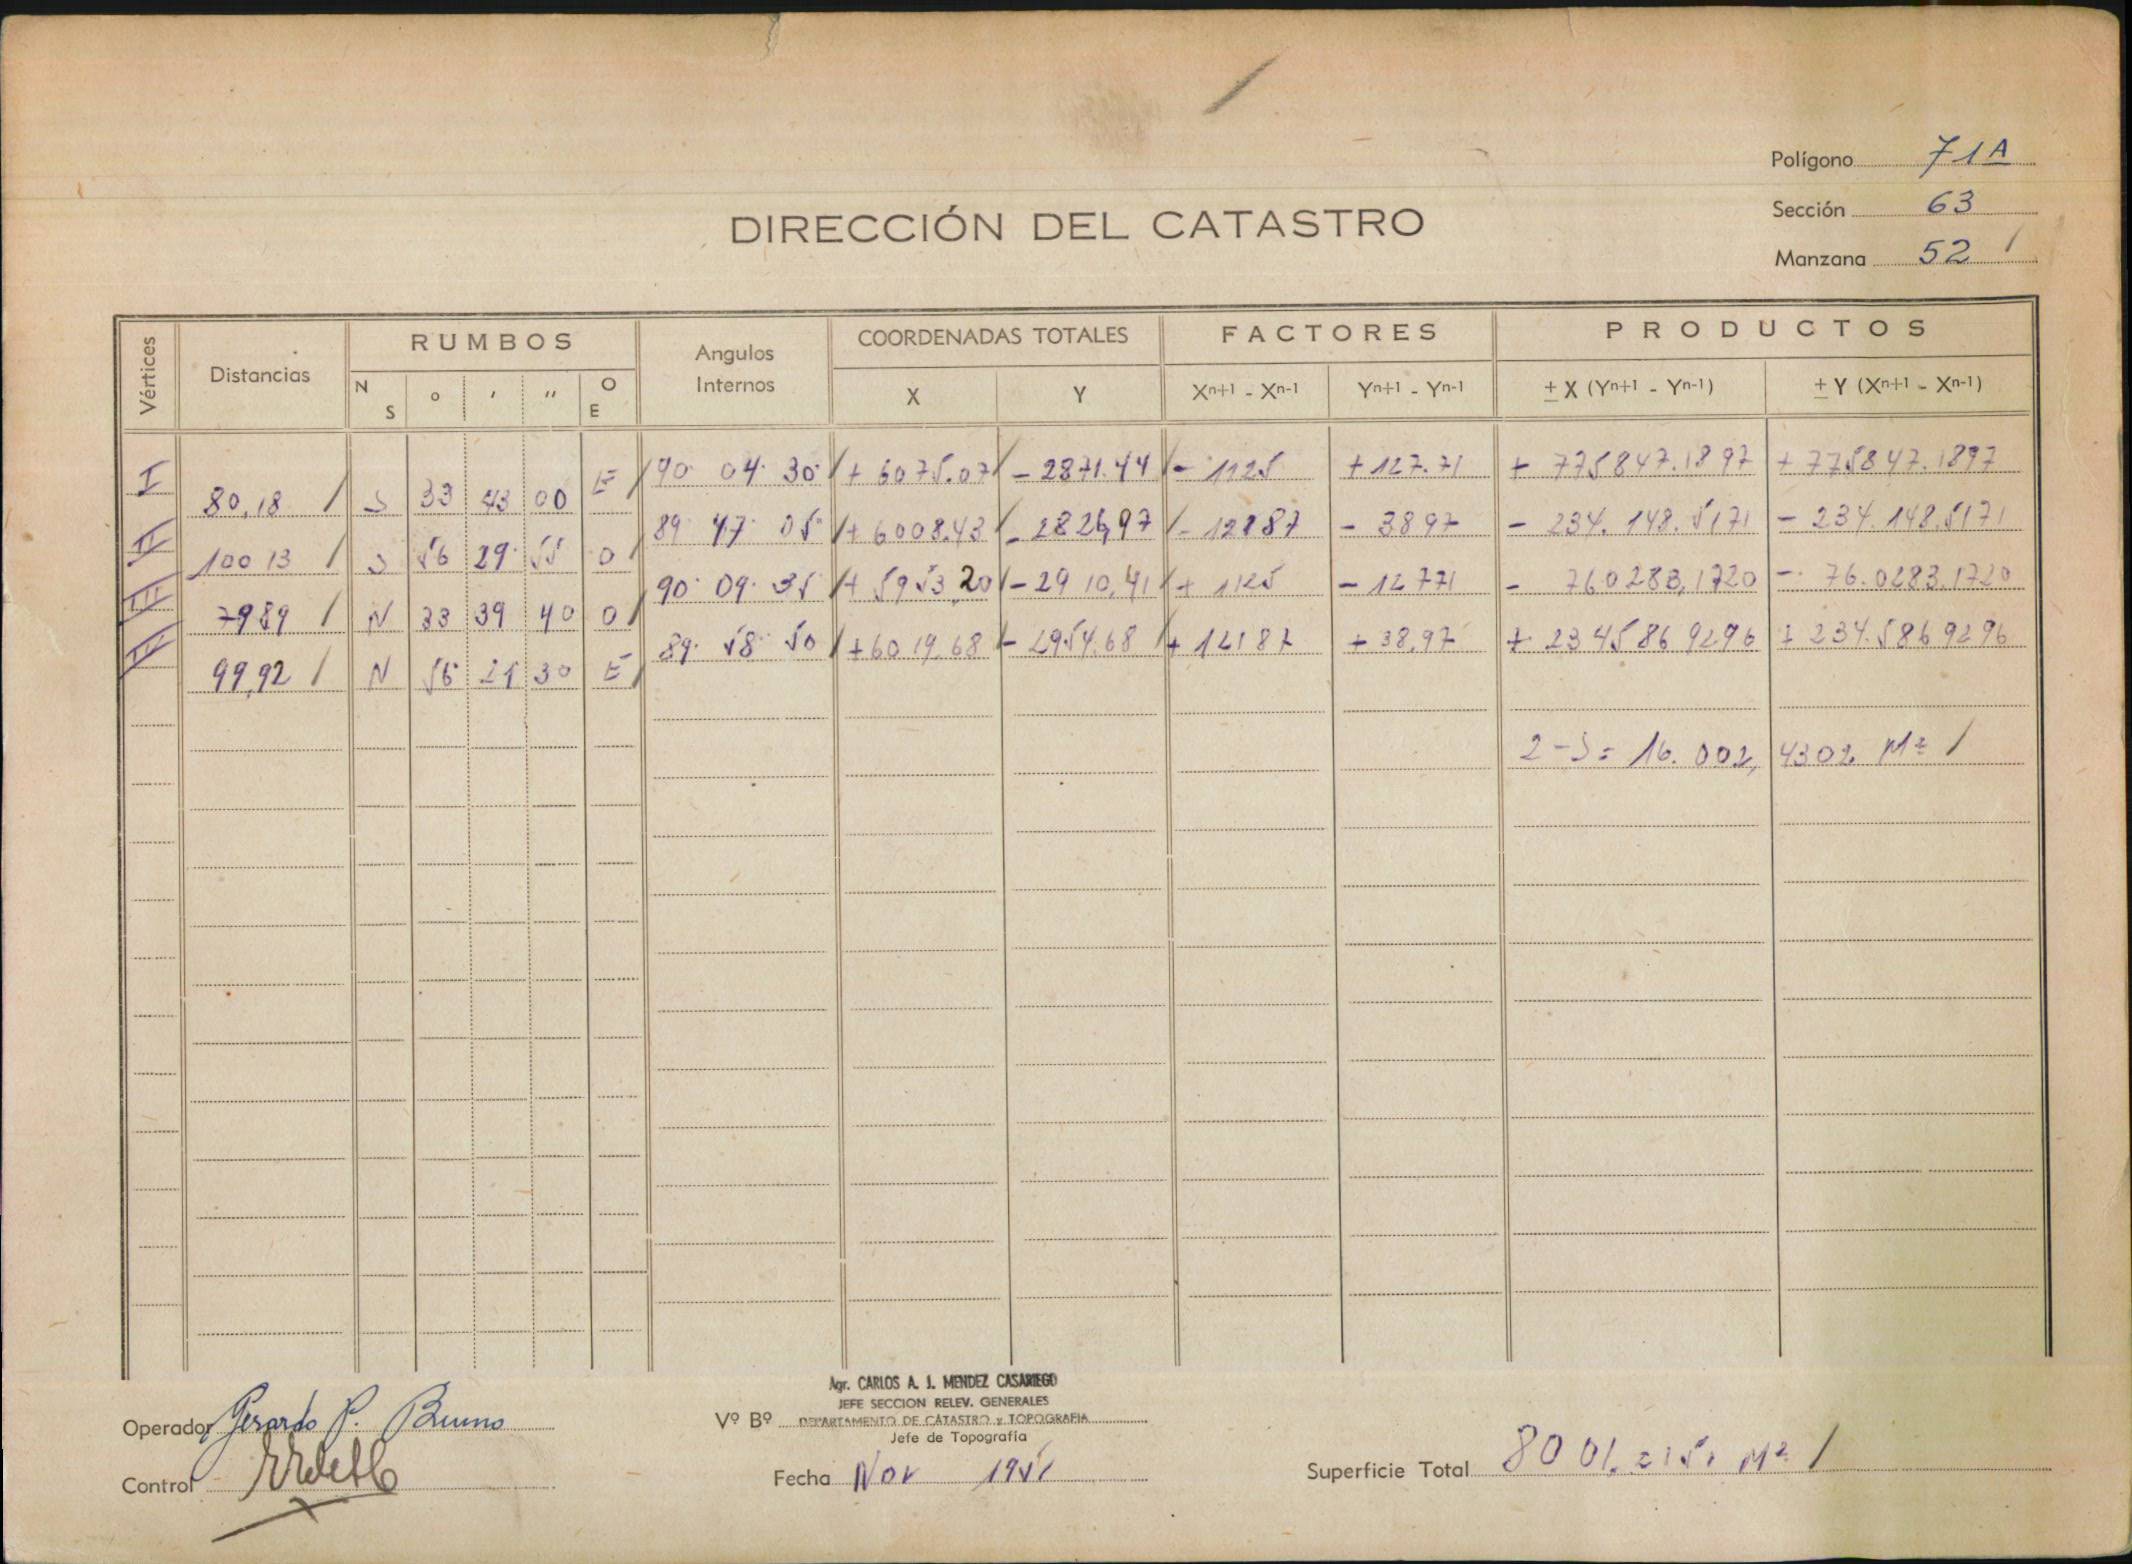 Polígono 71A
Sección 63
DIRECCIÓN DEL CATASTRO
Manzana 52 /
Vértices Distancias RUMBOS Angulos Internos COORDENADAS TOTALES FACTORES PRODUCTOS
N S º ' " O E X Y Xn+1 - Xn-1 Yn+1 - Yn-1 ± X (Yn+1 - Yn-1) ± Y (Xn+1 - Xn-1)
I 90· 04· 30· / + 6075.07 / - 2871.44 / - 1125 + 127.71 + 775847.1897 + 775847.1897
80,18 / S 33 43 00 E /
II 89· 47· 05· / + 6008.43 / - 2826,97 - 12187 - 3897 - 234.148.5171 - 234.148.5171
100 13 / S 56 29· 55 O /
III 90· 09· 35 / + 5953,20 / - 29 10,41 / + 1125 - 12771 - 760283,1720 - 76.0283.1720
79 89 / N 33 39 40 O /
IV 89· 58· 50 / + 60 19.68 / - 2954.68 / + 12187 + 38,97 + 234586 9296 + 234.586 9296
99,92 / N 56 21 30 E /
2-S = 16.002,4302 M2 /
Agr. CARLOS A. J. MENDEZ CASARIEGO
JEFE SECCION RELEV. GENERALES
Operador Gerardo P. Bruno Vº Bº DEPARTAMENTO DE CATASTRO y TOPOGRAFIA
Jefe de Topografía
Control Fecha Nov 1951 Superficie Total 8001.2151 M2 /